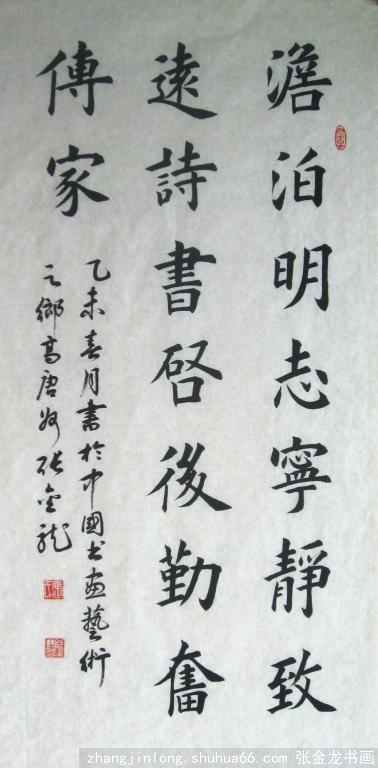 澹泊明志寧靜致
遠詩書啓後勤奮
傳家
乙未春月書於中國书画藝術
之鄉高唐州张金龙
zhangjinlong.shuhua66.com 张金龙书画